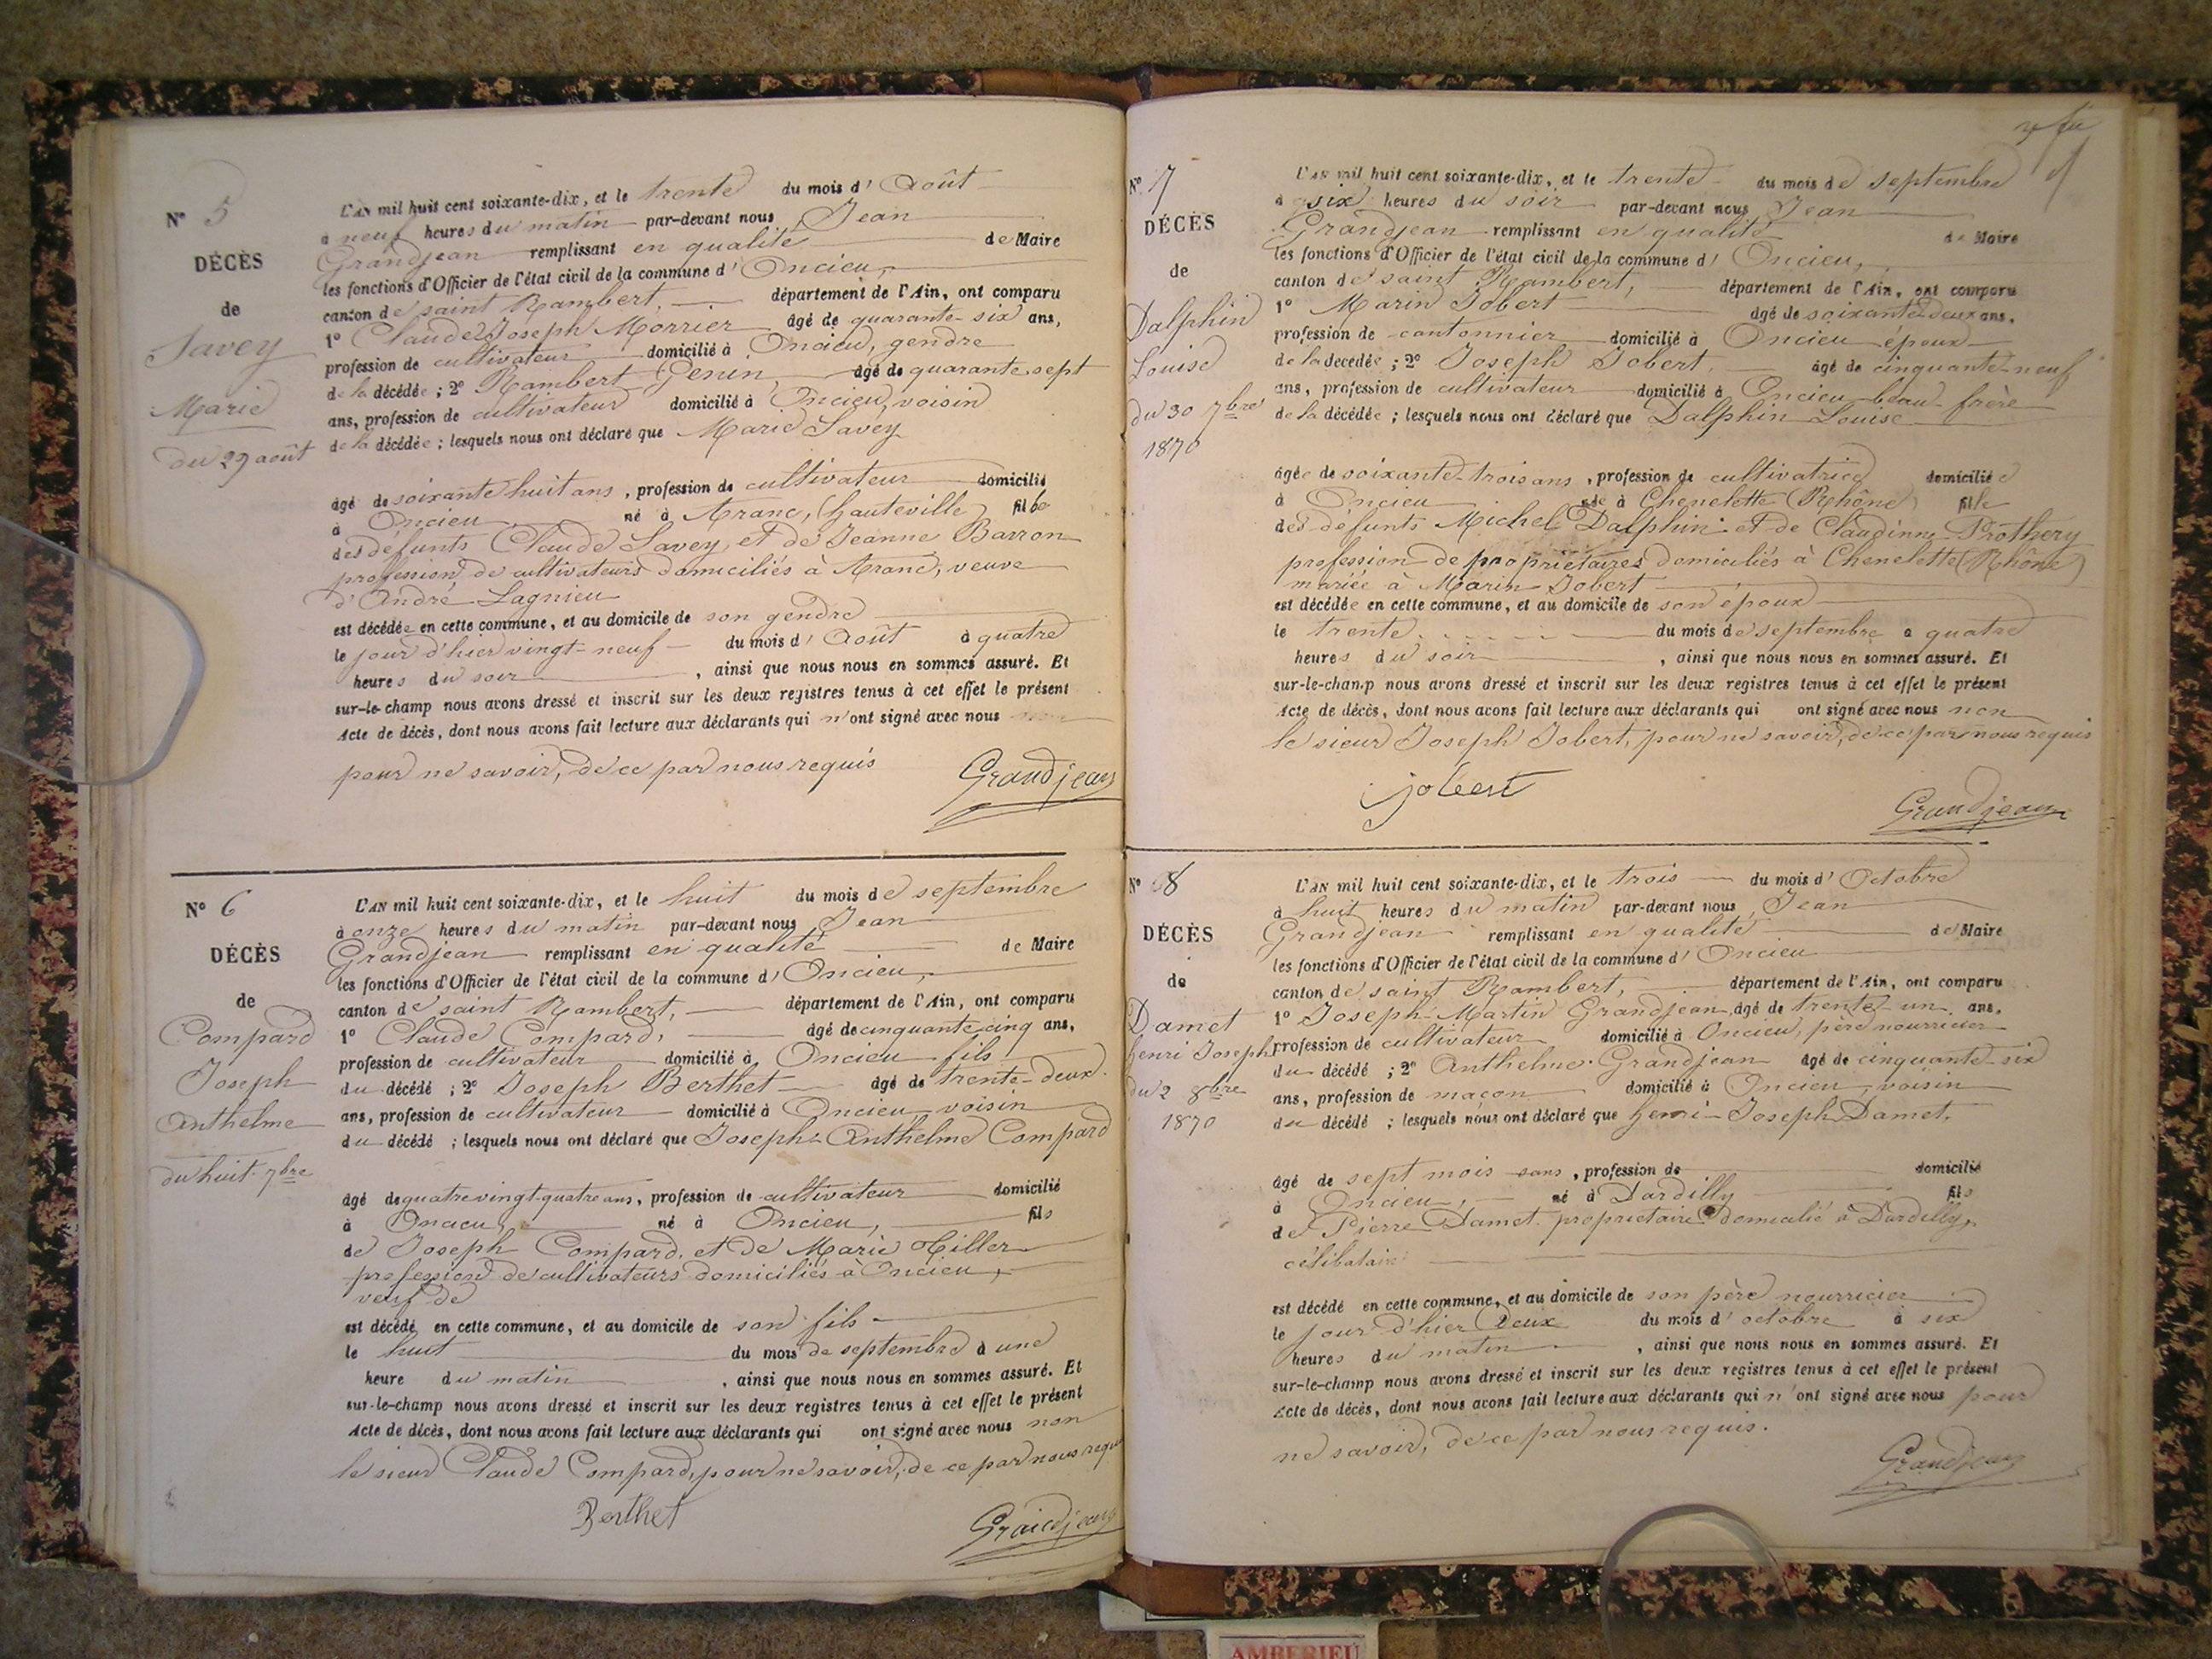 N° 5
DÉCÈS
de
Savey
Marie
du 29 août
L'AN mil huit cent soixante-dix, et le trente du mois d'Août
à neuf heures du matin par-devant nous Jean
Grandjean remplissant en qualité de Maire
les fonctions d'Officier de l'état civil de la commune d'Oncieu,
canton de saint Rambert, département de l'Ain, ont comparu
1° Claude Joseph Morrier âgé de quarante-six ans,
profession de cultivateur domicilié à Oncieu, gendre
de la décédée ; 2° Rambert Genin, âgé de quarante sept
ans, profession de cultivateur domicilié à Oncieu, voisin
de la décédée ; lesquels nous ont déclaré que Marie Savey
âgé de soixante huit ans, profession de cultivateur domicilié
à Oncieu, né à Aranc, (hauteville) fille
des défunts Claude Savey, et de Jeanne Barron
profession de cultivateurs domiciliés à Aranc, veuve
d'André Lagnieu
est décédée en cette commune, et au domicile de son gendre
le jour d'hier vingt-neuf du mois d'Août à quatre
heures du soir, ainsi que nous nous en sommes assuré. Et
sur-le-champ nous avons dressé et inscrit sur les deux registres tenus à cet effet le présent
Acte de décès, dont nous avons fait lecture aux déclarants qui n'ont signé avec nous
pour ne savoir, de ce par nous requis
Grandjean
N° 6
DÉCÈS
de
Compard
Joseph
Anthelme
du huit 7bre
L'AN mil huit cent soixante-dix, et le huit du mois de septembre
à onze heures du matin par-devant nous Jean
Grandjean remplissant en qualité de Maire
les fonctions d'Officier de l'état civil de la commune d'Oncieu,
canton de saint Rambert, département de l'Ain, ont comparu
1° Claude Compard, âgé de cinquante-cinq ans,
profession de cultivateur domicilié à Oncieu fils
du décédé ; 2° Joseph Berthet âgé de trente-deux
ans, profession de cultivateur domicilié à Oncieu voisin
du décédé ; lesquels nous ont déclaré que Joseph Anthelme Compard
âgé de quatre vingt-quatre ans, profession de cultivateur domicilié
à Oncieu, né à Oncieu, fils
de Joseph Compard, et de Marie
profession de cultivateurs domiciliés à Oncieu,
veuf de
est décédé en cette commune, et au domicile de son fils
le huit du mois de septembre à une
heure du matin, ainsi que nous nous en sommes assuré. Et
sur-le-champ nous avons dressé et inscrit sur les deux registres tenus à cet effet le présent
Acte de décès, dont nous avons fait lecture aux déclarants qui ont signé avec nous non
le sieur Claude Compard, pour ne savoir, de ce par nous requis
Berthet
Grandjean
N° 7
DÉCÈS
de
Dalphin
Louise
du 30 7bre
1870
L'AN mil huit cent soixante-dix, et le trente du mois de septembre
à six heures du soir par-devant nous Jean
Grandjean remplissant en qualité de Maire
les fonctions d'Officier de l'état civil de la commune d'Oncieu,
canton de saint Rambert, département de l'Ain, ont comparu
1° Marin Jobert âgé de soixante-deux ans,
profession de cantonnier domicilié à Oncieu époux
de la décédée ; 2° Joseph Jobert, âgé de cinquante-neuf
ans, profession de cultivateur domicilié à Oncieu beau-frère
de la décédée ; lesquels nous ont déclaré que Dalphin Louise
âgée de soixante-trois ans, profession de cultivatrice domiciliée
à Oncieu née à Chenelette (Rhône) fille
des défunts Michel Dalphin et de Claudinne Prothery
profession de propriétaires domiciliés à Chenelette (Rhône)
mariée à Marin Jobert
est décédée en cette commune, et au domicile de son époux
le trente du mois de septembre à quatre
heures du soir, ainsi que nous nous en sommes assuré. Et
sur-le-champ nous avons dressé et inscrit sur les deux registres tenus à cet effet le présent
Acte de décès, dont nous avons fait lecture aux déclarants qui ont signé avec nous non
le sieur Joseph Jobert, pour ne savoir, de ce par nous requis
jobert
Grandjean
N° 8
DÉCÈS
de
Damet
henri Joseph
du 2 8bre
1870
L'AN mil huit cent soixante-dix, et le trois du mois d'Octobre
à huit heures du matin par-devant nous Jean
Grandjean remplissant en qualité de Maire
les fonctions d'Officier de l'état civil de la commune d'Oncieu
canton de saint Rambert, département de l'Ain, ont comparu
1° Joseph-Martin Grandjean âgé de trente-un ans,
profession de cultivateur domicilié à Oncieu, père nourricier
du décédé ; 2° Anthelme Grandjean âgé de cinquante-six
ans, profession de maçon domicilié à Oncieu, voisin
du décédé ; lesquels nous ont déclaré que henri-Joseph Damet,
âgé de sept mois sans, profession de domicilié
à Oncieu, né à Dardilly fils
de Pierre Damet propriétaire domicilié à Dardilly,
célibataire
est décédé en cette commune, et au domicile de son père nourricier
le jour d'hier Deux du mois d'octobre à six
heures du matin, ainsi que nous nous en sommes assuré. Et
sur-le-champ nous avons dressé et inscrit sur les deux registres tenus à cet effet le présent
Acte de décès, dont nous avons fait lecture aux déclarants qui n'ont signé avec nous pour
ne savoir, de ce par nous requis.
Grandjean
AMBERIEU